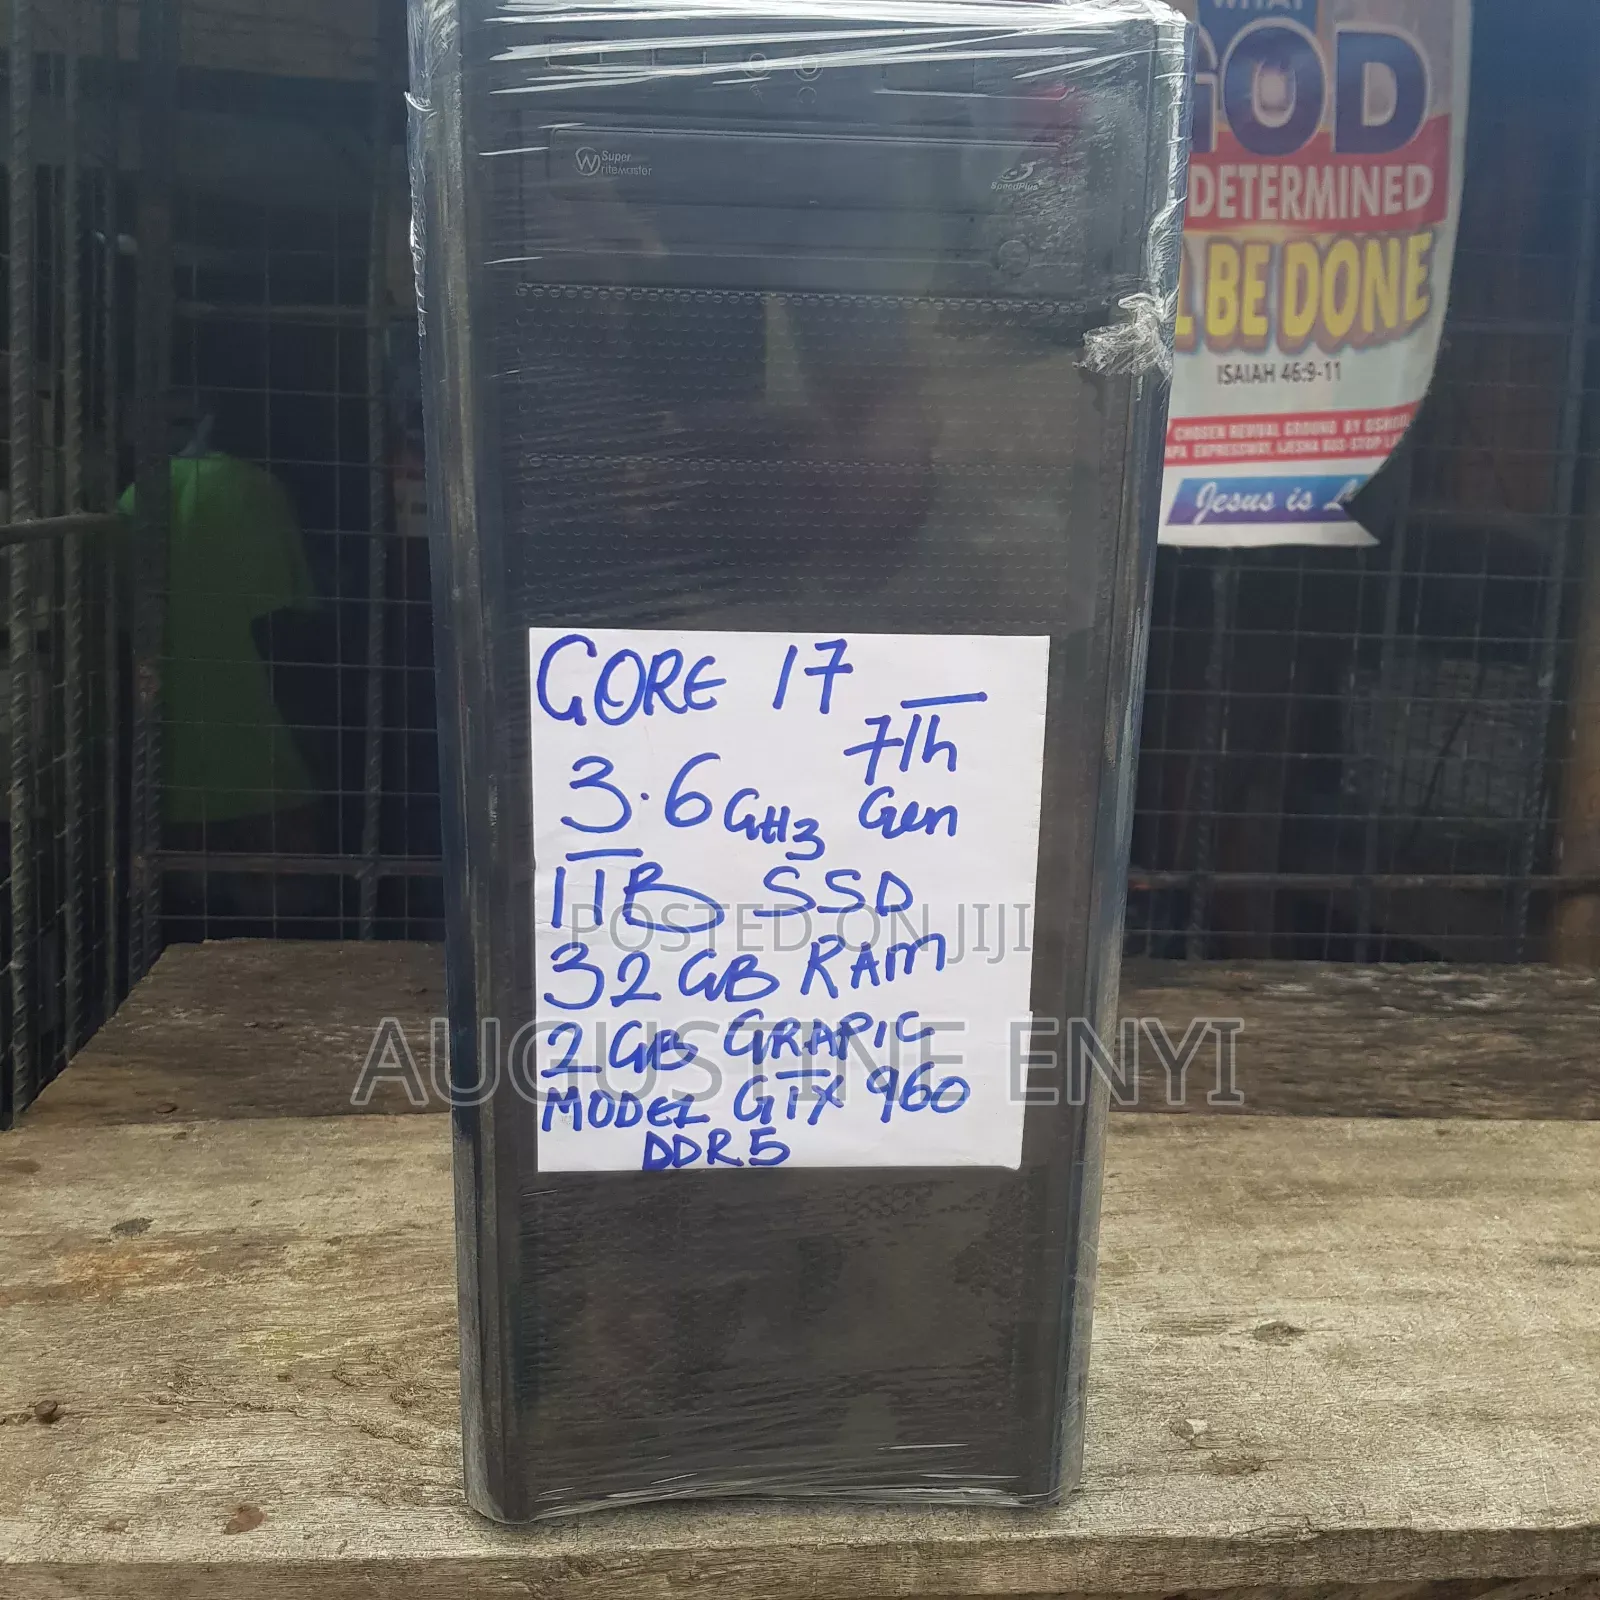 WHAT
GOD
DETERMINED
L BE DONE
ISAIAH 46:9-11
CHOSEN REVIVAL GROUND BY OSHODI
APA EXPRESSWAY, IJESHA BUS STOP
Jesus is L
Super
WriteMaster
SpeedPlus
CORE 17
7Th
3.6GHz Gen
1TB SSD
POSTED ON JIJI
32GB RAM
2GB GRAPIC
AUGUSTINE ENYI
MODEL GTX 960
DDR5